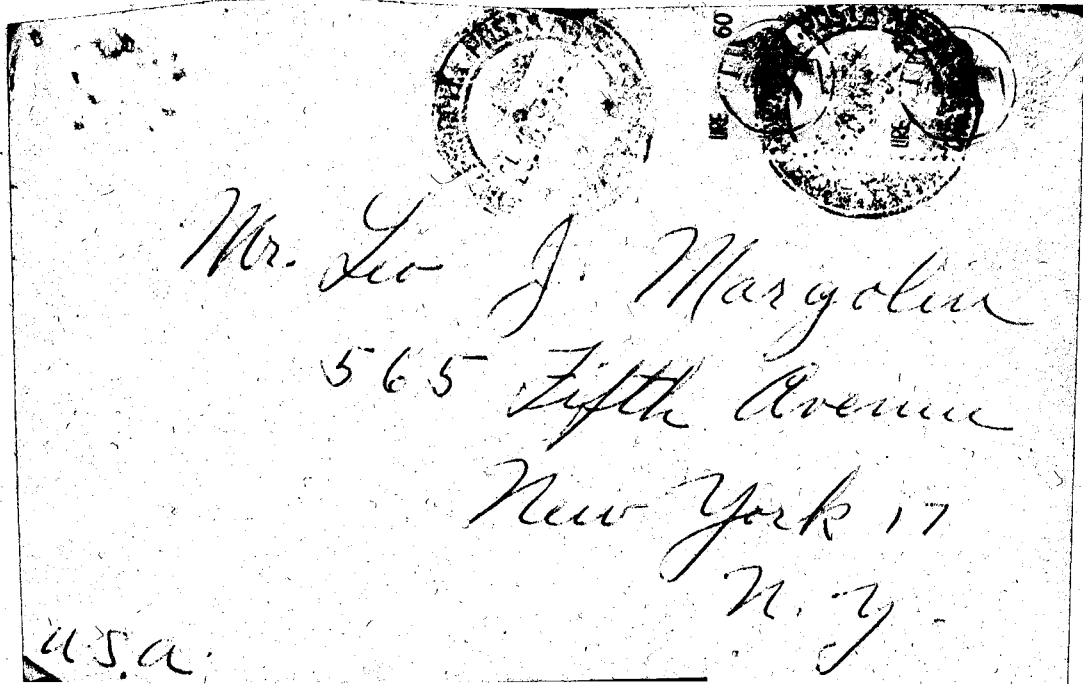 LIRE 60
LIRE
Mr. Leo J. Margolin
565 Fifth Avenue
New York 17
N. Y.
U.S.A.